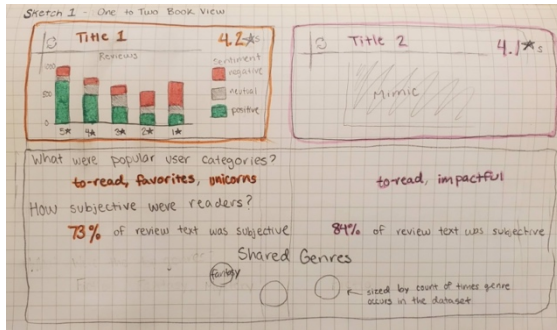 Sketch 1 - One to Two Book View
Title 1
4.2★s
Reviews
Sentiment
negative
neutral
positive
500
0
5★ 4★ 3★ 2★ 1★
Title 2
4.1★s
Mimic
What were popular user categories?
to-read, favorites, unicorns
to-read, impactful
How subjective were readers?
73% of review text was subjective
84% of review text was subjective
Shared Genres
fantasy
sized by count of times genre
occurs in the dataset